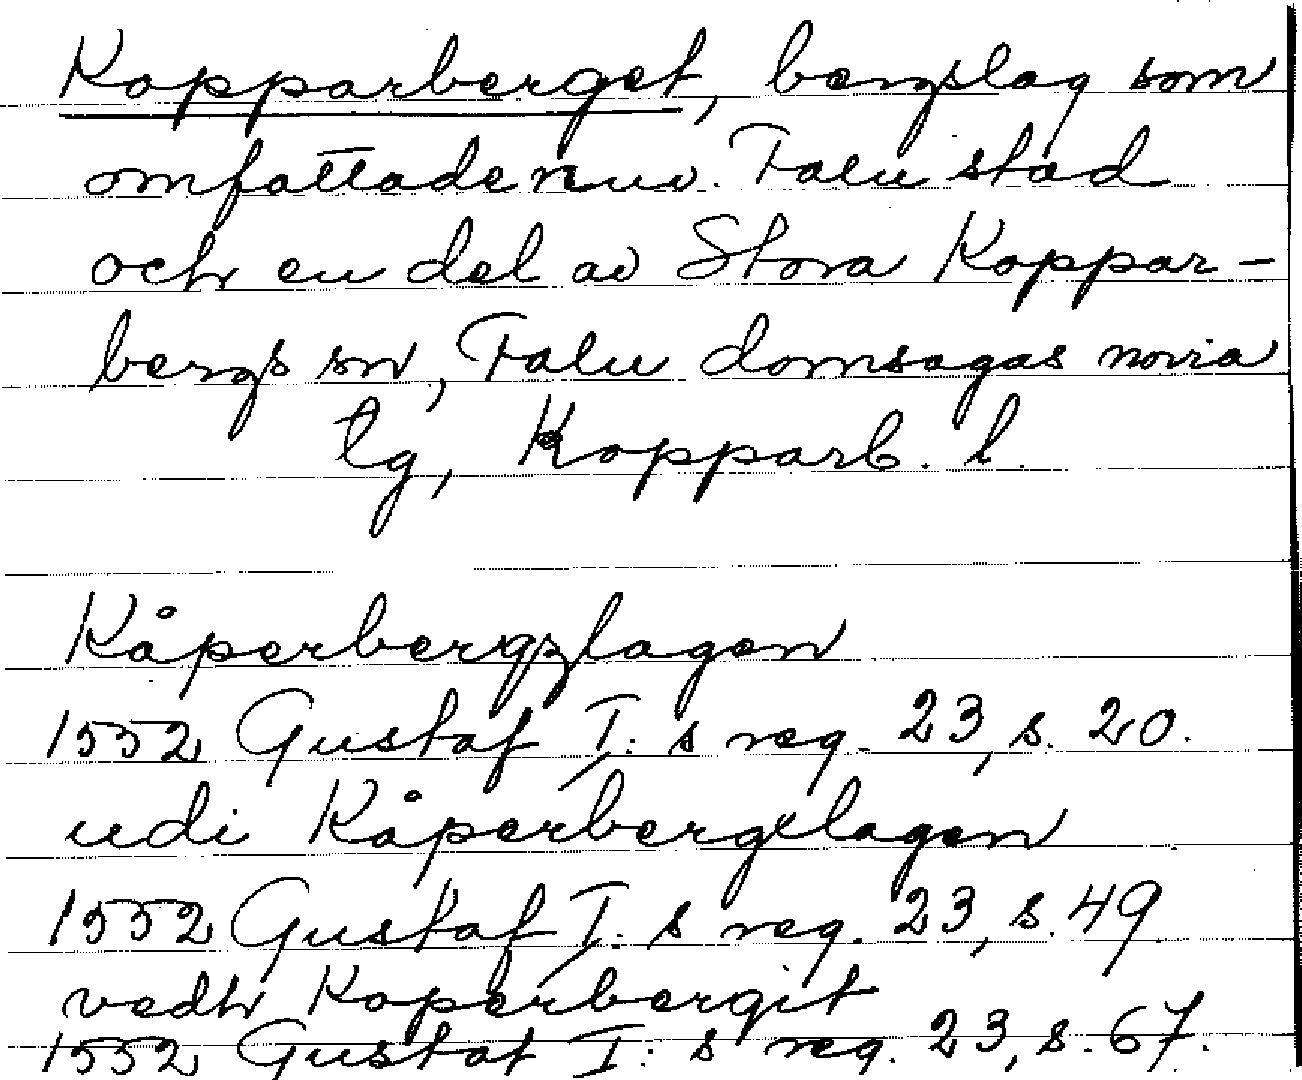 Kopparberget, bergslag som
omfattade nuv. Falu stad
och en del av Stora Koppar-
bergs sn, Falu domsagas norra
tg, Kopparb. l.
Kåperbergzlagen
1552 Gustaf I:s reg. 23, s. 20.
udi Kåperbergslagen
1552 Gustaf I:s reg. 23, s. 49
vedh Koperbergit
1552 Gustaf I:s reg. 23, s. 67.